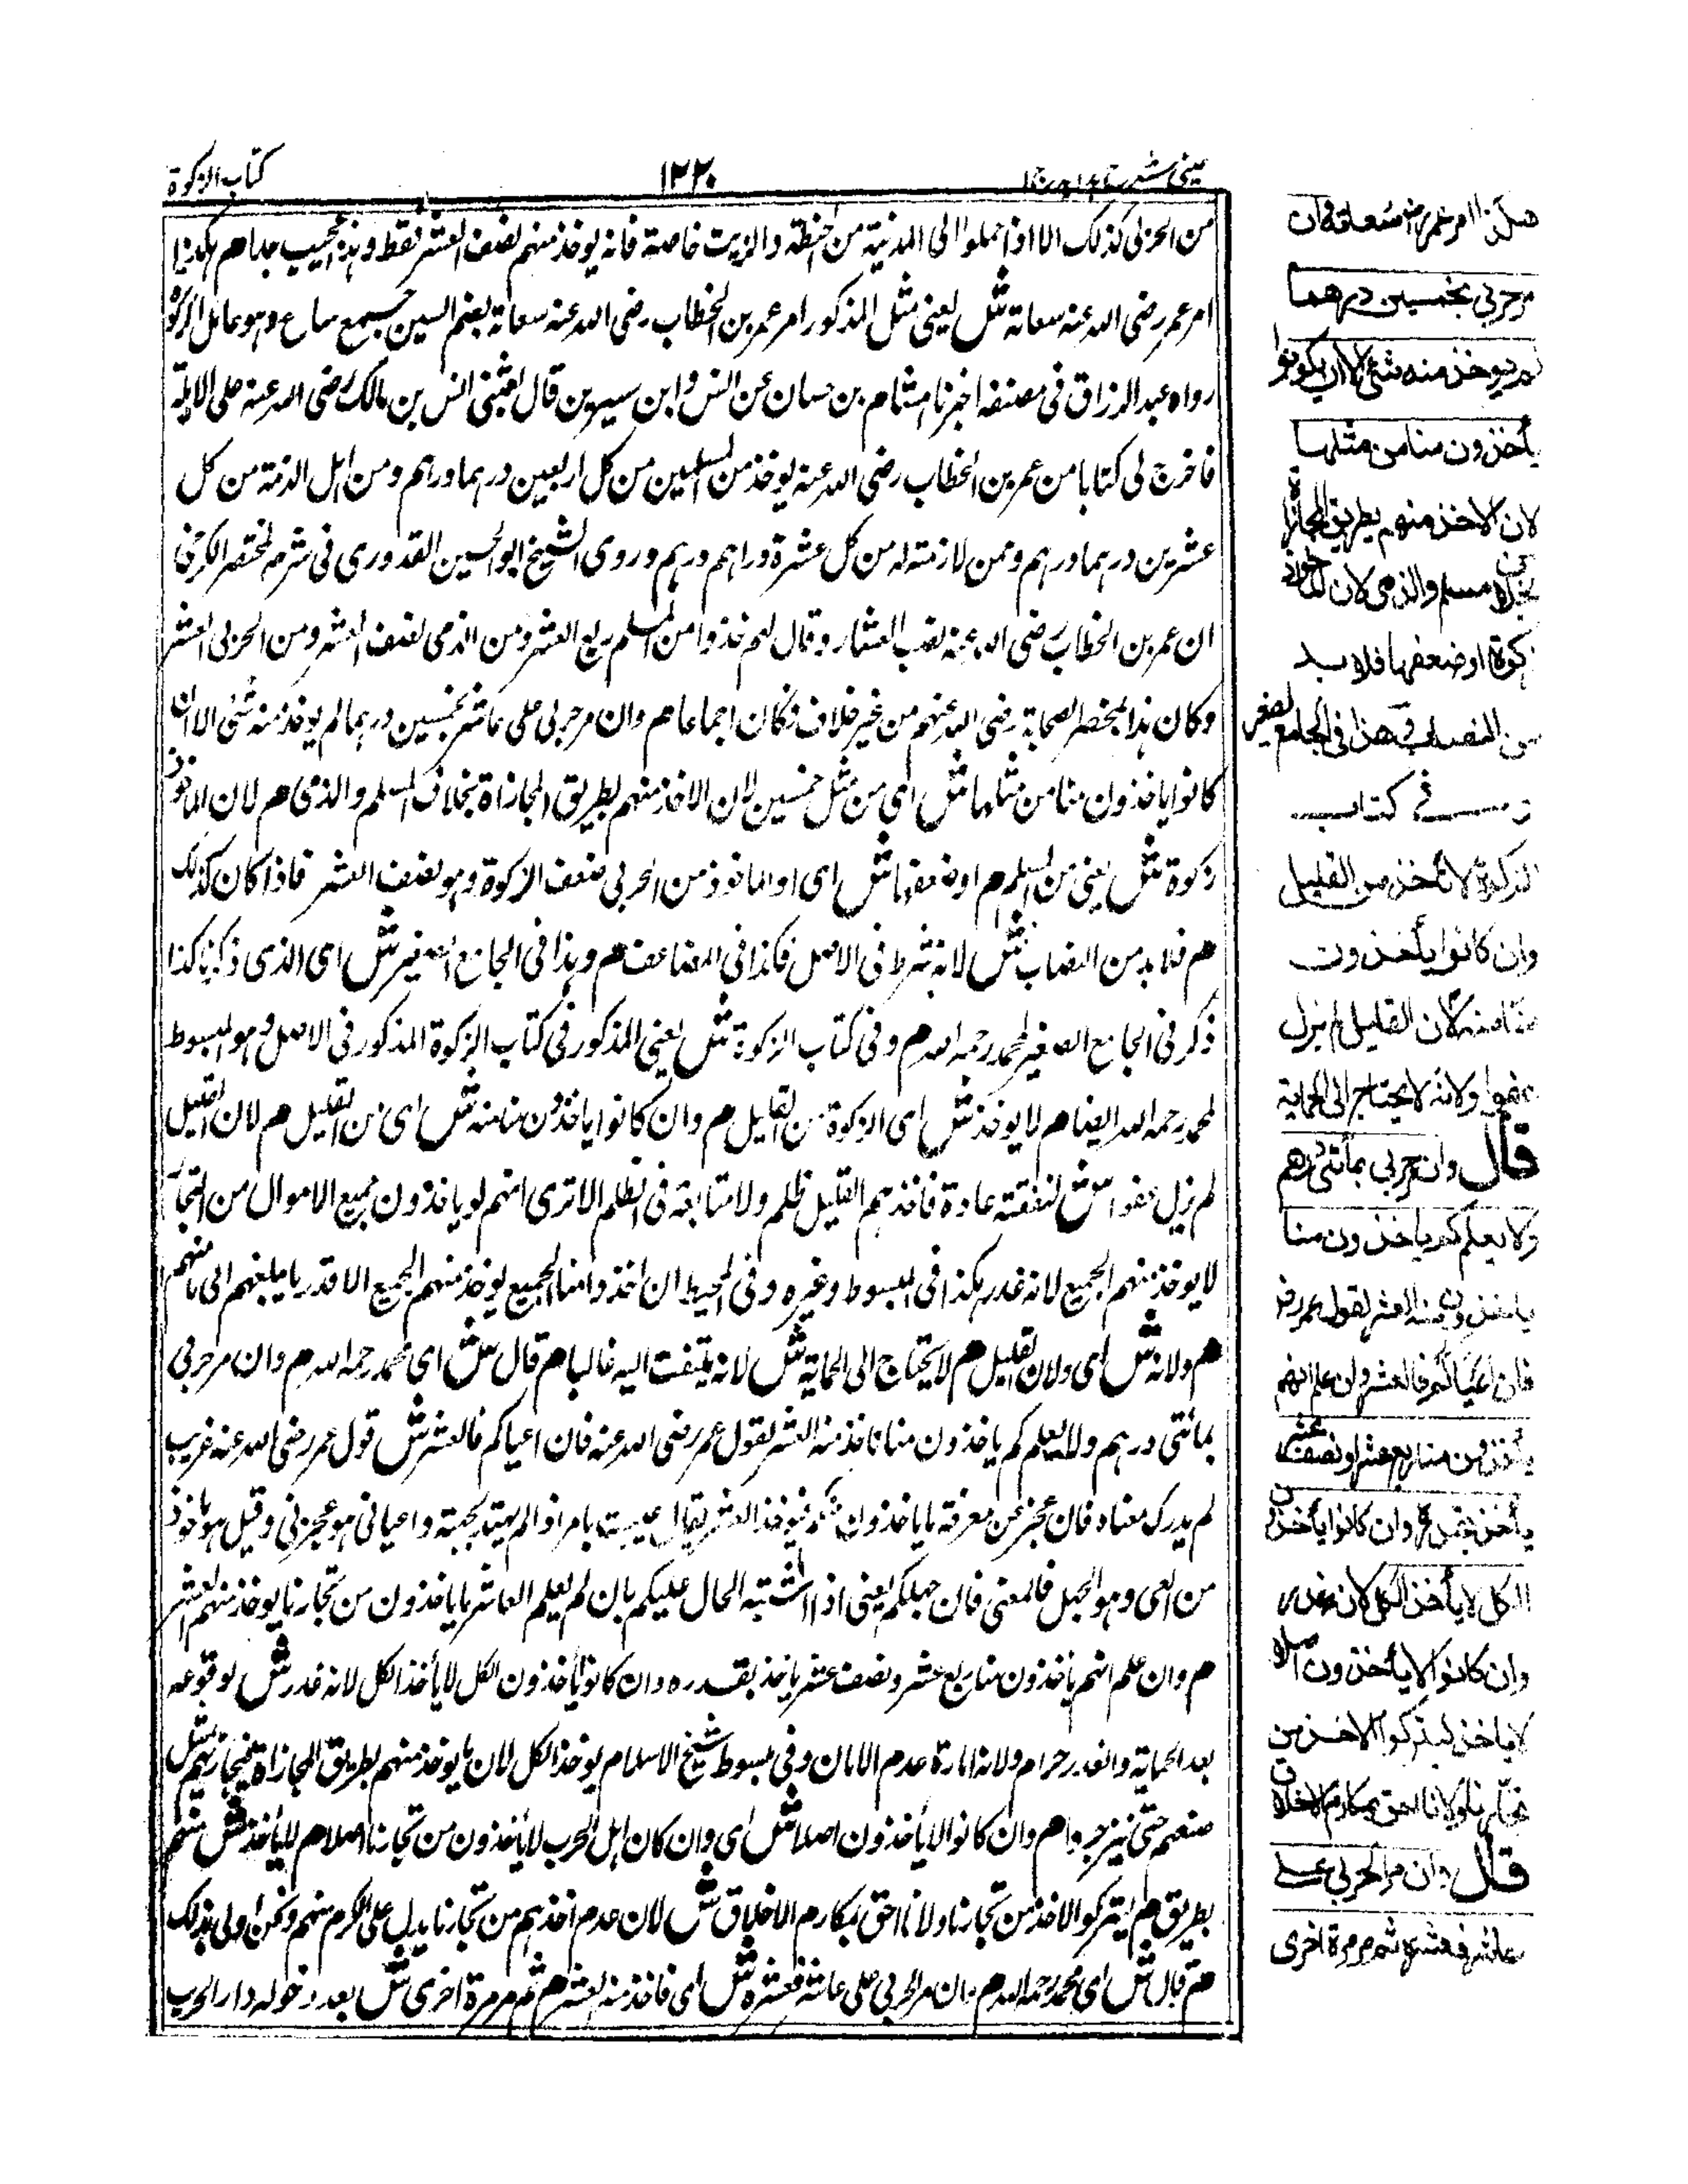 عینی شرح ہدایہ ج ا
١٢٢٠
کتاب الزکوة
من الحربی کذلک الا اذا حملوا الی المدینة من الحنطة والزیت خاصة فانه یوخذ منهم نصف العشر فقط وهذا عجیب جدا هم هکذا
امر عمر رضی الله عنه سعاتة ش یعنی مثل المذکور امر عمر بن الخطاب رضی الله عنه سعاتة بضم السین جمع ساع وهو عامل الزکوة
رواه عبد الرزاق فی مصنفه اخبرنا هشام بن حسان عن انس وابن سیرین قال بعثنی انس بن مالک رضی الله عنه علی الایلة
فاخرج لی کتابا من عمر بن الخطاب رضی الله عنه یوخذ من المسلمین من کل اربعین درهما درهم ومن اهل الذمة من کل
عشرین درهما درهم وممن لا ذمة له من کل عشرة دراهم درهم وروی الشیخ ابو الحسین القدوری فی شرحه لمختصر الکرخی
ان عمر بن الخطاب رضی الله عنه نصب العشار وقال لهم خذوا من المسلم ربع العشر ومن الذمی نصف العشر ومن الحربی العشر
وکان هذا بمحضر الصحابة رضی الله عنهم من غیر خلاف فکان اجماعا هم وان مر حربی علی عاشر بخمسین درهما لم یوخذ منه شئی الا ان
کانوا یاخذون منا من مثلها ش ای من مثل خمسین لان الاخذ منهم بطریق المجازاة بخلاف المسلم والذمی هم لان الماخوذ
زکوة ش یعنی من المسلم م او ضعفها ش ای او الماخوذ من الحربی ضعف الزکوة وهو نصف العشر فاذا کان کذلک
هم فلا بد من النصاب ش لانه شرط فی الاصل فکذا فی المضاعف هم وهذا فی الجامع الصغیر ش ای الذی ذکرنا کذا
ذکر فی الجامع الصغیر لمحمد رحمه الله م وفی کتاب الزکوة ش یعنی المذکور فی کتاب الزکوة المذکور فی الاصل وهو المبسوط
لمحمد رحمه الله ایضا هم لا یوخذ ش ای الزکوة من القلیل م وان کانوا یاخذون منا منه ش ای من القلیل هم لان القلیل
لم یزل عفوا ش لنفقته عادة فاخذهم القلیل ظلم ولا متابعة فی الظلم الا تری انهم لو یاخذون جمیع الاموال من التجار
لا یوخذ منهم الجمیع لانه غدر هکذا فی المبسوط وغیره وفی المحیط ان اخذوا منا الجمیع یوخذ منهم الجمیع الا قدر ما یبلغهم الی مامنهم
هم ولانه ش ای ولان القلیل هم لا یحتاج الی الحمایة ش لانه یلتفت الیه غالبا هم قال ش ای محمد رحمه الله م وان مر حربی
بمائتی درهم ولا یعلم کم یاخذون منا ناخذ منه العشر لقول عمر رضی الله عنه فان اعیاکم فالعشر ش قول عمر رضی الله عنه غریب
لم یدرک معناه فان عجز عن معرفة ما یاخذون منکم فیوخذ العشر یقال عییت بامر اذا لم یهتد لجهته واعیانی هو عجزنی وقیل هو ماخوذ
من العی وهو الجهل فالمعنی فان جهلکم یعنی اذا اشتبه الحال علیکم بان لم یعلم العاشر ما یاخذون من تجارنا یوخذ منهم العشر
م وان علم انهم یاخذون منا ربع عشر ونصف عشر یاخذ بقدره وان کانوا یأخذون الکل لا یأخذ الکل لانه غدر ش لوقوعه
بعد الحمایة والغدر حرام ولانه امارة عدم الامان وفی مبسوط شیخ الاسلام یوخذ الکل لان ما یوخذ منهم بطریق المجازاة فیجازیهم بمثل
صنعهم حتی ینزجروا هم وان کانوا لا یأخذون اصلا ش ای وان کان اهل الحرب لا یأخذون من تجارنا اصلا هم لا یأخذ ش منهم
بطریق هم لیترکوا الاخذ من تجارنا ولانا احق بمکارم الاخلاق ش لان عدم اخذهم من تجارنا یدل علی الکرم منهم ونحن اولی بذلک
هم قال ش ای محمد رحمه الله م وان مر الحربی علی عاشر فعشره ش ای فاخذ منه العشر هم ثم مر مرة اخری ش بعد دخوله دار الحرب
هکذا امر عمر رضی سعاته وان
مر حربی بخمسین درهما
لم یوخذ منه شئ الا ان یکونوا
یأخذون منا من مثلها
لان الاخذ منهم بطریق المجازاة
بخلاف المسلم والذمی لان الماخوذ
زکوة او ضعفها فلا بد
من النصاب وهذا فی الجامع الصغیر
و فی کتاب
الزکوة لا نأخذ من القلیل
وان کانوا یأخذون
منا منه لان القلیل لم یزل
عفوا ولانه لا یحتاج الی الحمایة
قال وان مر حربی بمأتی درهم
ولا یعلم کم یاخذون منا
یاخذ منه العشر لقول عمر رض
فان اعیاکم فالعشر وان علم انهم
یأخذون منا ربع عشر او نصف عشر
یأخذ بقدره وان کانوا یأخذون
الکل لا یأخذ الکل لانه غدر
وان کانوا لا یأخذون اصلا
لا یاخذ لیترکوا الاخذ من
تجارنا ولانا احق بمکارم الاخلاق
قال وان مر الحربی علی
عاشر فعشره ثم مر مرة اخری